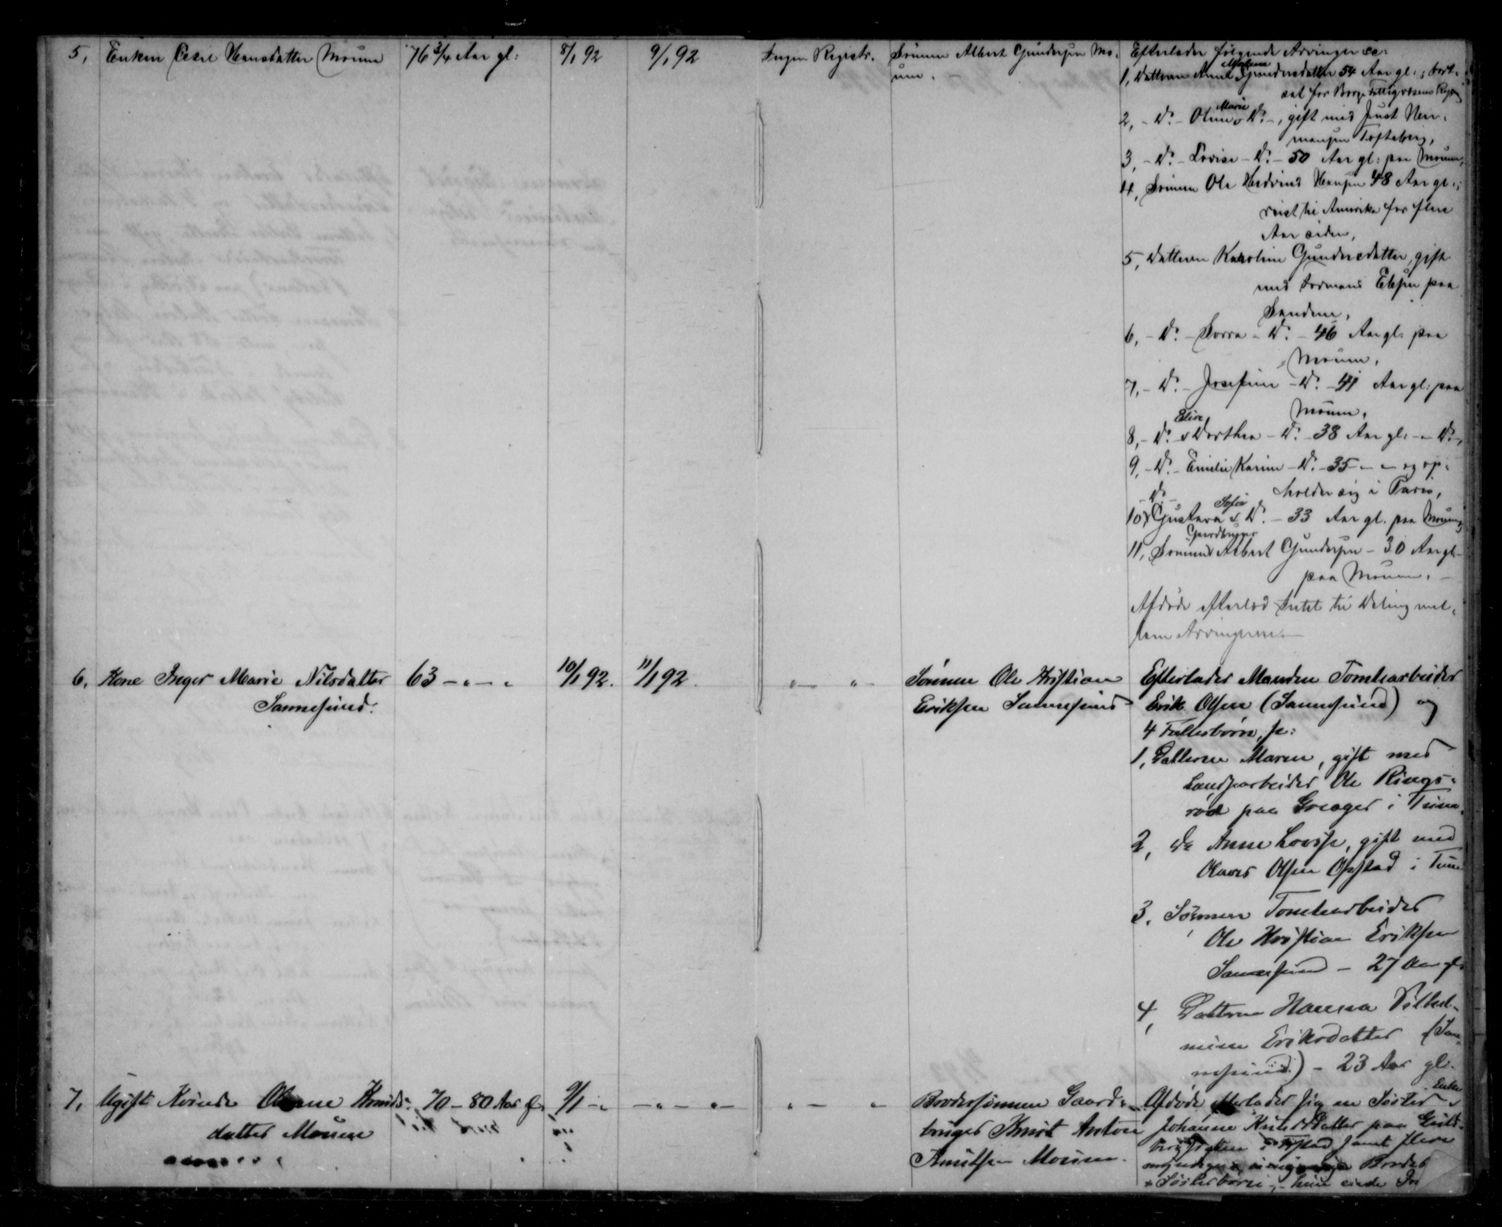 5, Enken Cesel Hansdatter Moum 76 3/4 Aar gl: 8/1 92 9/1 92 Ingen Registr. Sønnen Albert Gundersen Mo-
um.
Efterlader følgende Arvinger
1, Datteren Anne Gundersdatter 54 Aar gl.;
2, - Do - Marie - Do -, gift med Just Her-
mansen Tofteberg,
3, - Do - Lovise - Do - 50 Aar gl: paa Moum,
4, Sønnen Ole Hansen 48 Aar gl.;
reist til Amerika for flere
Aar siden,
5, Datteren Karoline Gundersdatter, gift
med Edvsen paa
Sandem,
6, - Do - - Do - 46 Aar gl: paa
Moum,
7, - Do - Josefine - Do - 41 Aar gl: paa
Moum,
8, - Do - Dorthea - Do - 38 Aar gl: - Do -,
9, - Do - Emilie Karine - Do - 35 - - og op-
holder sig i Paris,
- Do -
10, Gustava Sofie - Do - 33 Aar gl. paa Moum,
Gaardbruger
11, Sønnen Albert Gundersen - 30 Aar gl -
paa Moum. -
Afdøde efterlod Intet til Deling mel-
lem Arvingerne. -
6, Kone Inger Marie Nilsdatter 63 - " - " 10/1 92. 11/1 92. " - " - Sønnen Ole Kristian
Sannesund. Eriksen Sannesund
Efterlader Manden Tomtearbeider
Erik Olsen (Sannesund) og
4 Fællesbørn, se:
1, Datteren Maren, gift med
Landsarbeider Ole Rings-
rød paa Greager i Tune.
2, do Anne Lovise, gift med
Olaves Olsen Opstad i Tune
3, Sønnen Tomtearbeider
Ole Kristian Eriksen
Sannesund - 27 Aar gl.
4, Datteren Hanna Vilhel-
mine Eriksdatter (San-
nesund) - 23 Aar gl.
7, Ugift Kvinde Oleane Knuds- 70 - 80 Aar gl. 9/1 - " - " - " - " - " Brodersønnen Gaard-
datter Moum bruger Knut Anton
Knutsen Moum.
Afdøde efterlader sig en Søster
Johanne Knutsdatter paa
samt flere
myndige Broder
& Søsterbørn, -